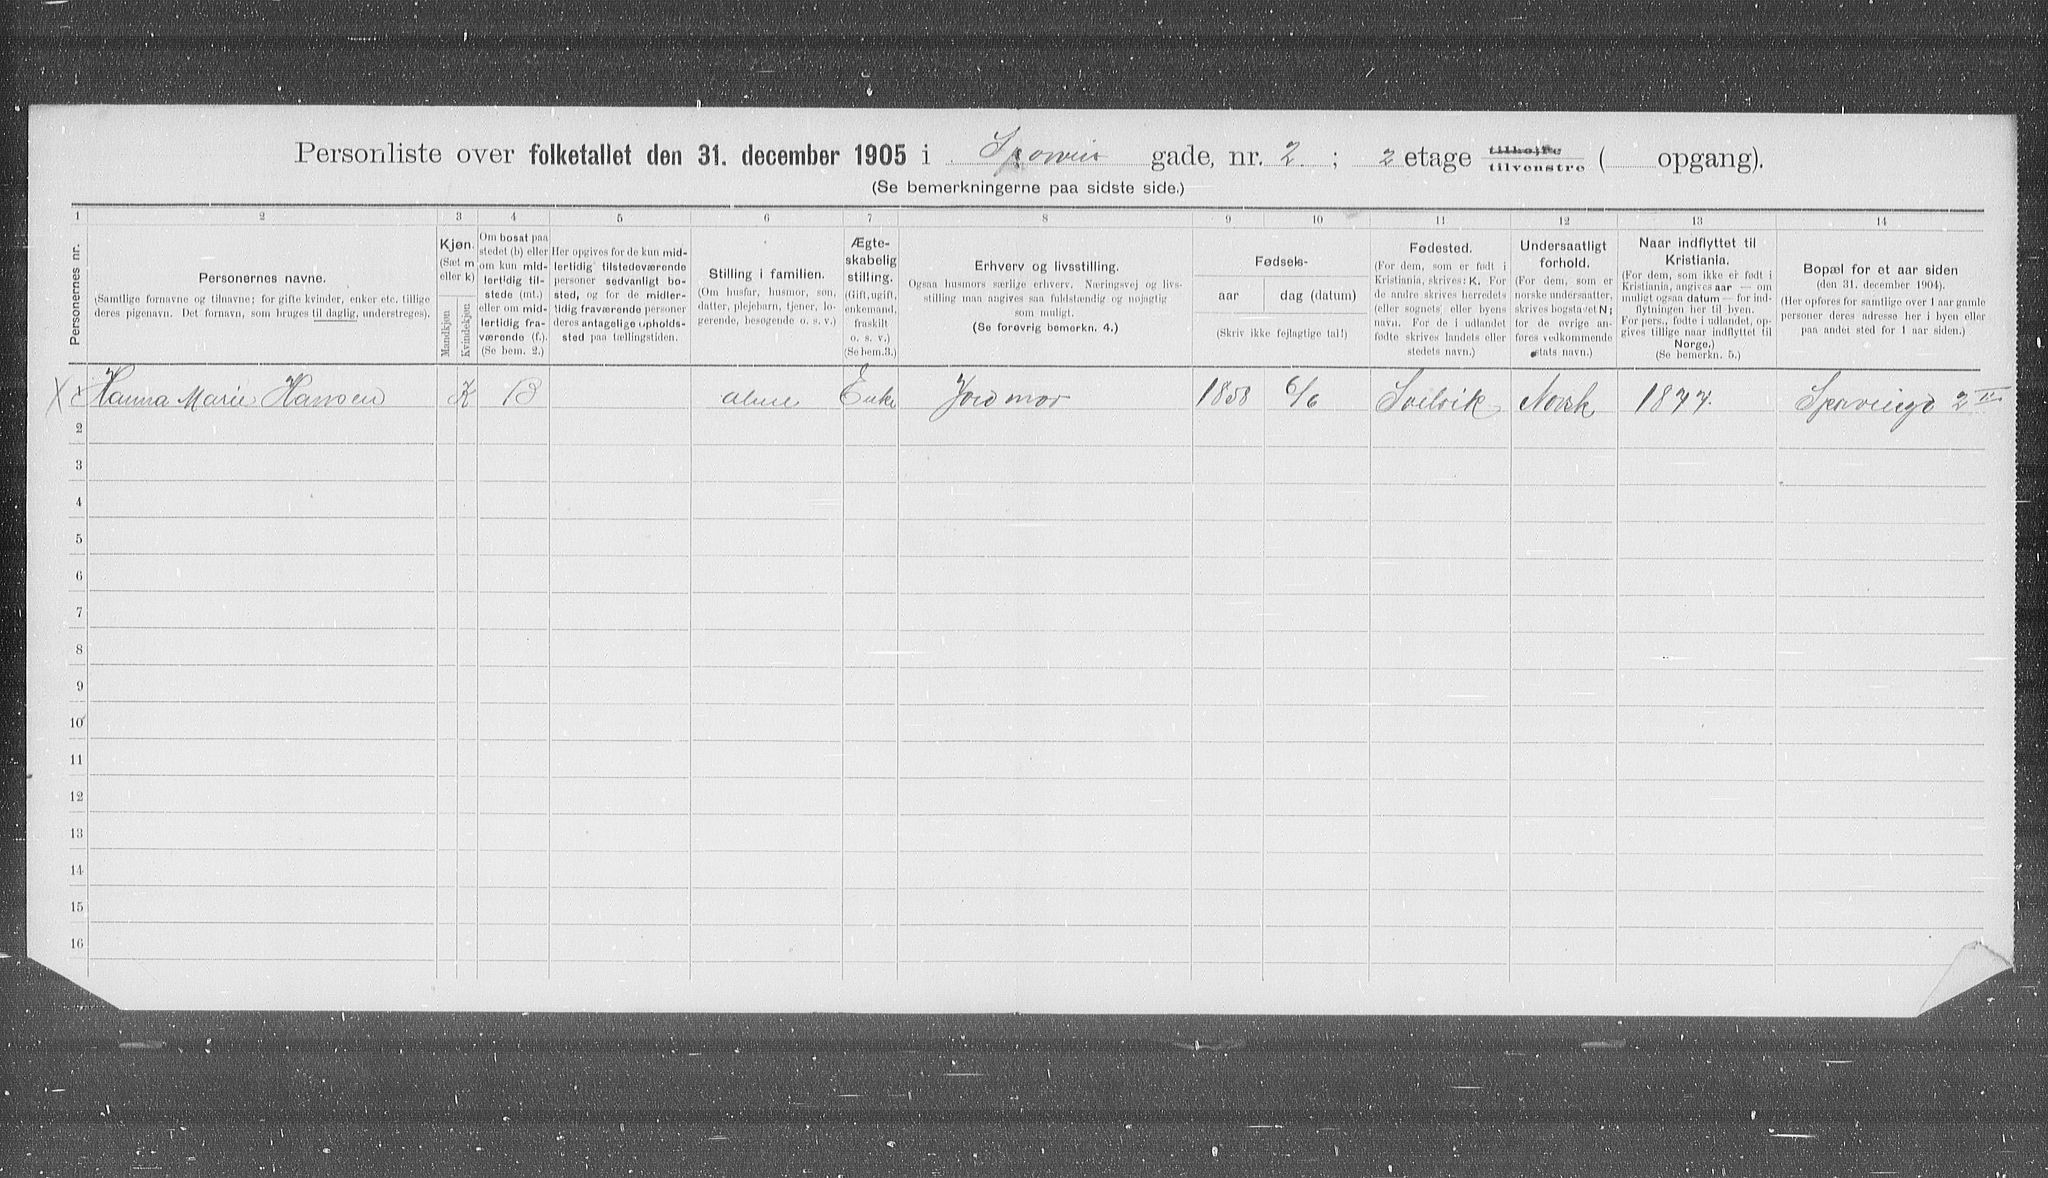 Personliste over folketallet den 31. december 1905 i gade, nr. 2 ; 2 etage tilhøjre tilvenstre ( opgang).
(Se bemerkningerne paa sidste side.)
1 2 3 4 5 6 7 8 9 10 11 12 13 14
Personernes nr.
Personernes navne.
(Samtlige fornavne og tilnavne; for gifte kvinder, enker etc. tillige
deres pigenavn. Det fornavn, som bruges til daglig, understreges).
Kjøn.
(Sæt m
eller k)
Mandkjøn
Kvindekjøn
Om bosat paa
stedet (b) eller
om kun mid-
lertidig til-
stede (mt.)
eller om mid-
lertidig fra-
værende (f.).
(Se bem. 2.)
Her opgives for de kun mid-
lertidig tilstedeværende
personer sedvanligt bo-
sted, og for de midler-
tidig fraværende personer
deres antagelige opholds-
sted paa tællingstiden.
Stilling i familien.
(Om husfar, husmor, søn,
datter, plejebarn, tjener, lo-
gerende, besøgende o. s. v.)
Ægte-
skabelig
stilling.
(Gift, ugift,
enkemand,
fraskilt
o. s. v.)
(Se bem. 3.)
Erhverv og livsstilling.
Ogsaa husmors særlige erhverv. Næringsvej og livs-
stilling maa angives saa fuldstændig og nøjagtig
som muligt.
(Se forøvrig bemerkn. 4.)
Fødsels-
aar
dag (datum)
(Skriv ikke fejlagtige tal!)
Fødested.
(For dem, som er født i
Kristiania, skrives: K. For
de andre skrives herredets
(eller sognets) eller byens
navn. For de i udlandet
fødte skrives landets eller
stedets navn.)
Undersaatligt
forhold.
(For dem, som er
norske undersaatter,
skrives bogstavet N;
for de øvrige an-
føres vedkommende
stats navn.)
Naar indflyttet til
Kristiania.
(For dem, som ikke er født i
Kristiania, angives aar — om
muligt ogsaa datum — for ind-
flytningen her til byen.
For pers., fødte i udlandet, op-
gives tillige naar indflyttet til
Norge.)
(Se bemerkn. 5.)
Bopæl for et aar siden
(den 31. december 1904).
(Her opføres for samtlige over 1 aar gamle
personer deres adresse her i byen eller
paa andet sted for 1 aar siden.)
Hanna Marie Hansen K B alene Enke Jordmor 1858 6/6 Svelvik Norsk 1877. 2 II
2
3
4
5
6
7
8
9
10
11
12
13
14
15
16